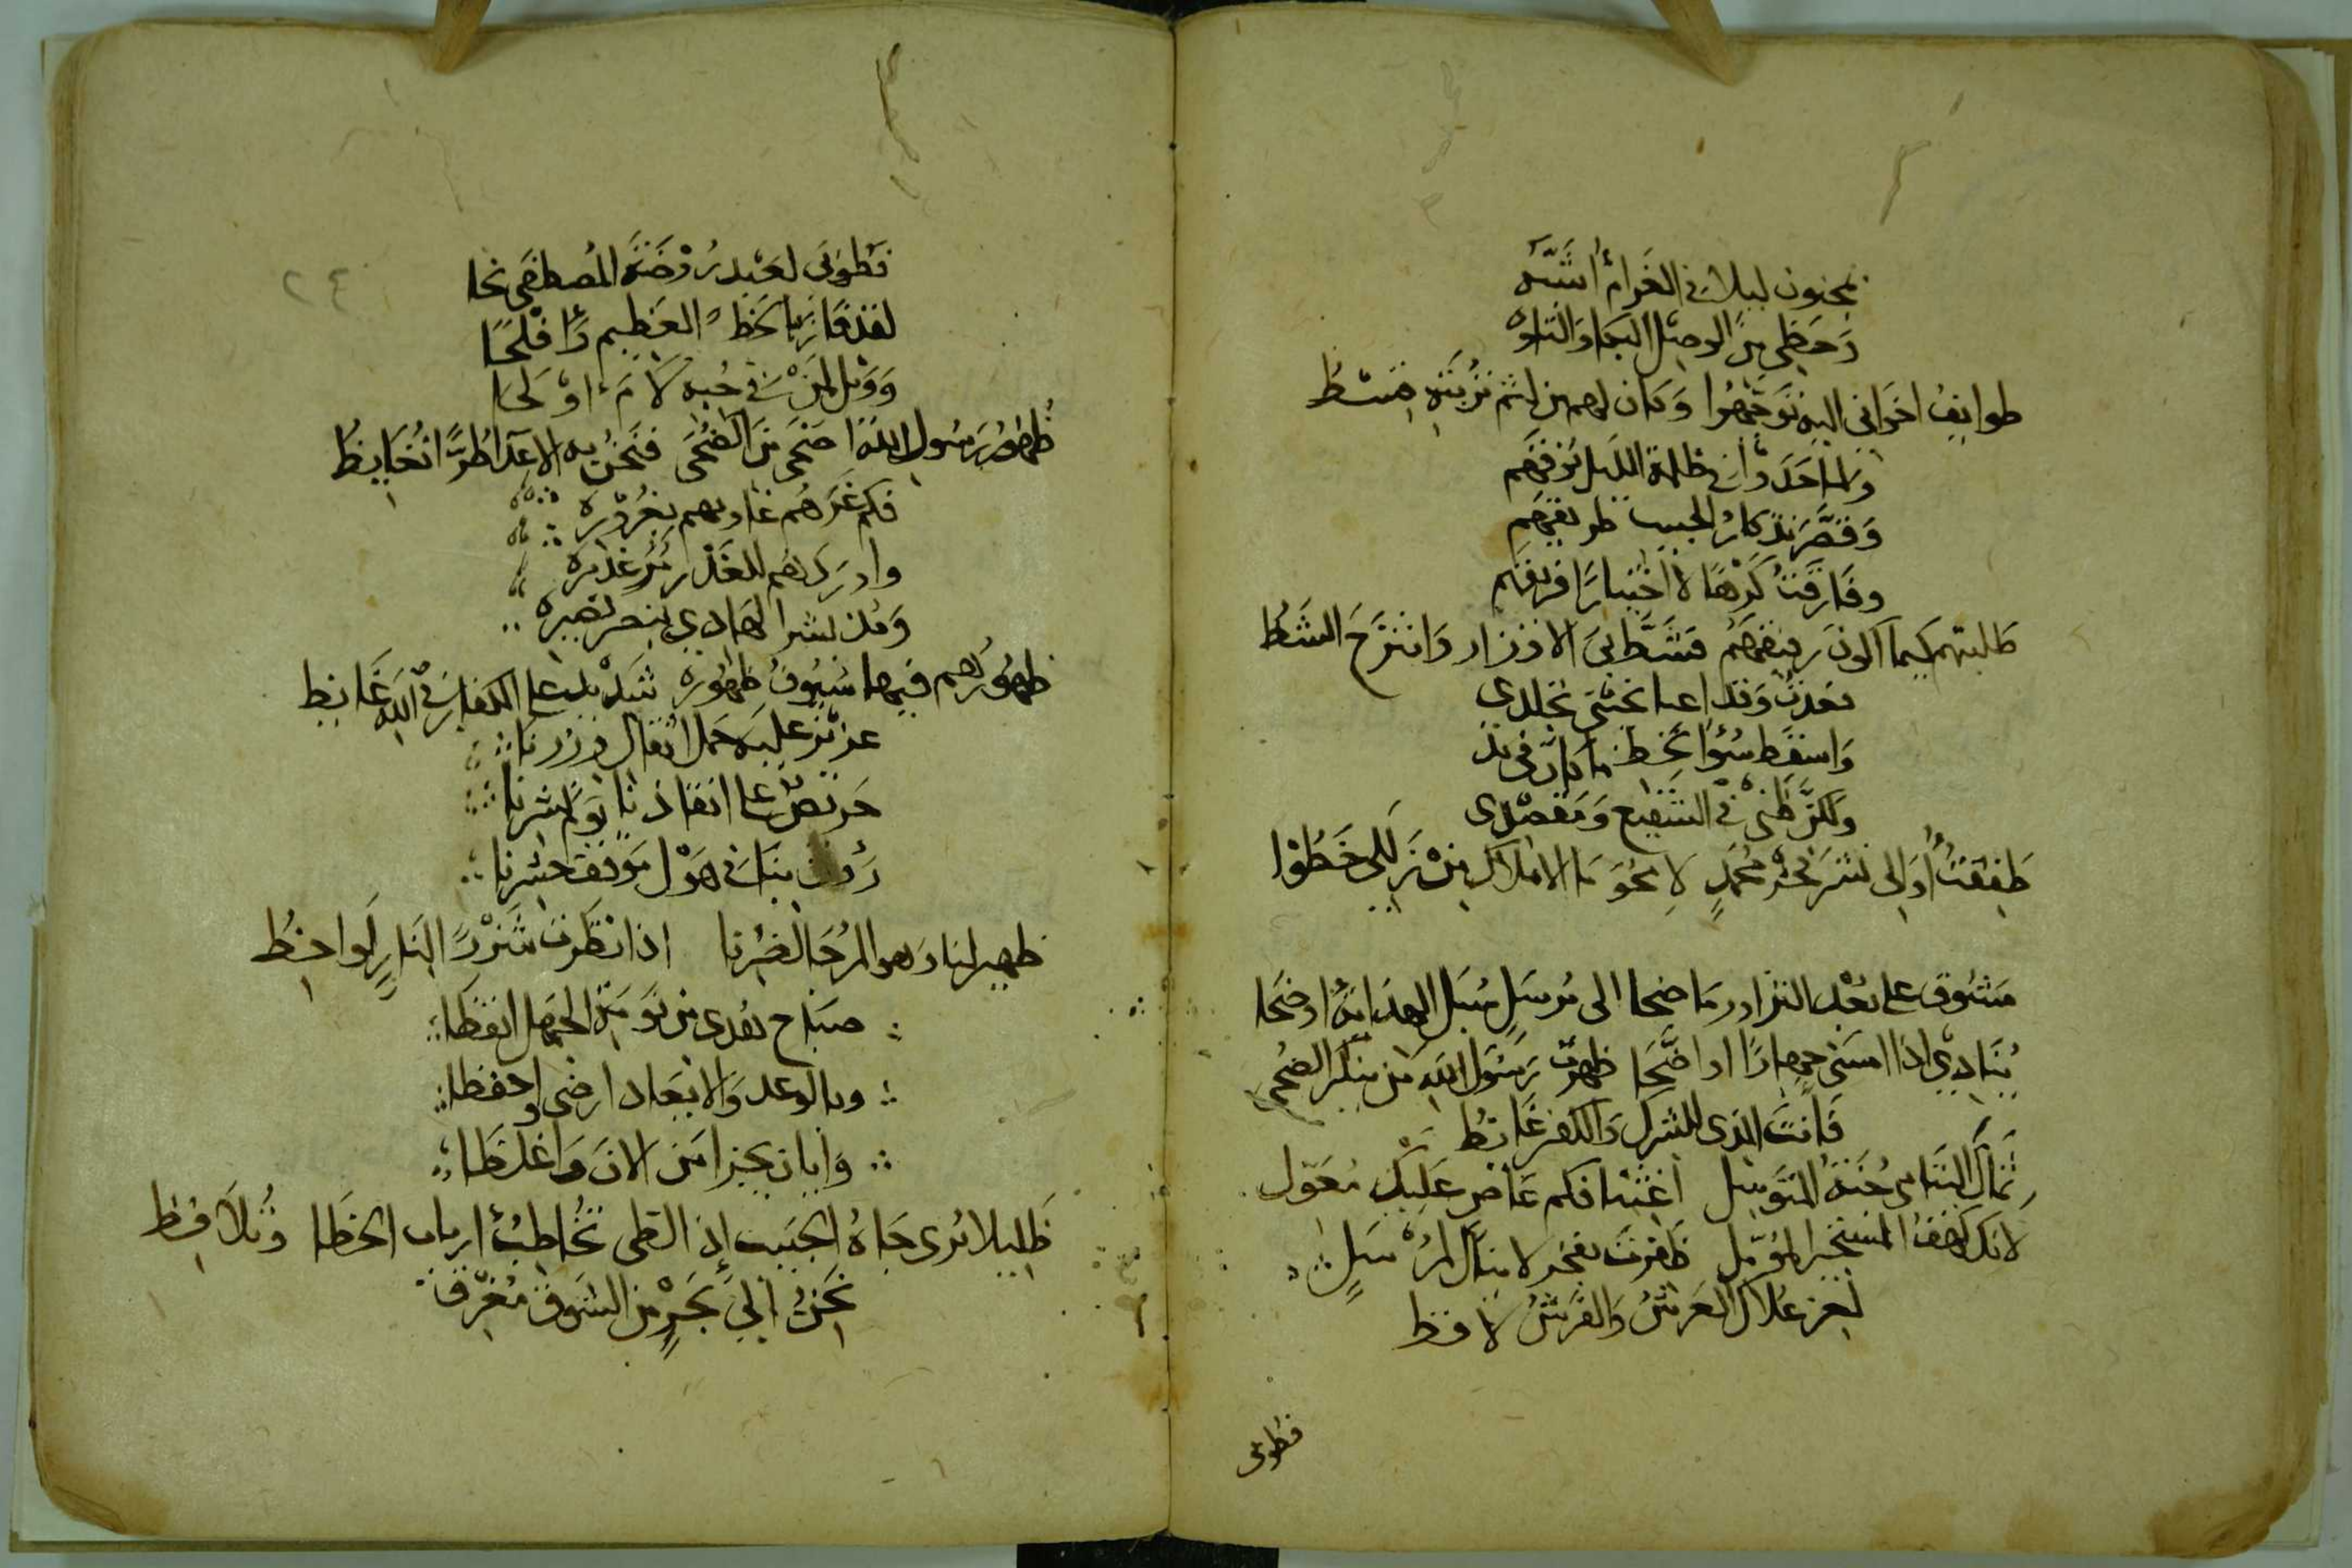 بمجنون ليلا في الغرام أشبه
وحظي من الوصل البكا والتاوه
طوايف اخواني اليه توجهوا وكان لهم من لثم تربته قسط
ولما حدوا في ظلمة الليل نوقهم
وقصر تذكار الحبيب طريقهم
وفارقت كرها لا اختيارا فريقهم
طلبتهم كيما اكون رفيقهم فشط بي الاوزار وانتزح الشط
بعدت وقد اعيا تجلدي
واسقط سؤ الحظ ما كان في يد
ولكن ظني في الشفيع ومقصدي
طفقت أوالي نشر محمد لا محو ما الاملاك من زللي خطوا
مشوق على بعد المزار وما ضحا الى مرسل سبل الهدى اوضحا
ينادي اذا امسى جهارا او اضحا ظهرت رسول الله من الضحى
فانت الذي للشرك والكفر غائظ
ثمال اليتامى جنة المتوسل اغثنا فكم عاص عليك معول
لانك كهف المستجير المؤمل ظفرت بفخر لا ينال لمرسل
لعز علاك العرش والفرش لافظ
فطوبى
٢٤
فطوبى لعبد روضة المصطفى نحا
لقد فاز بالحظ العظيم وأفلحا
وويل لمن في حبه لام او لحا
ظهور رسول الله اضحى من الضحى فنحن به الاعدا طرا نغايظ
فكم غرهم غاويهم بغروره
وادركهم للغدر غديره
ومذ بشر الهادي بنصر نصيره
ظهورهم فيها سيوف ظهوره شديد على الكفار في الله غائظ
عزيز عليه حمل اثقال وزرنا
حريص على انقاذنا يوم نشرنا
رؤف بنا في هول موقف حشرنا
ظهير لنا وهو المرجا لضرنا اذا نظرت شزرا الينا لواحظ
صباح هدى من نومة الجهل ايقظا
وبالوعد والايعاد ارضى واحفظا
من الان واغلظا
ظليلا نرى جاه الحبيب اذ التظى تخاطب ارباب الخطا وتلافظ
نحن الى بحر من الشوق مغرق